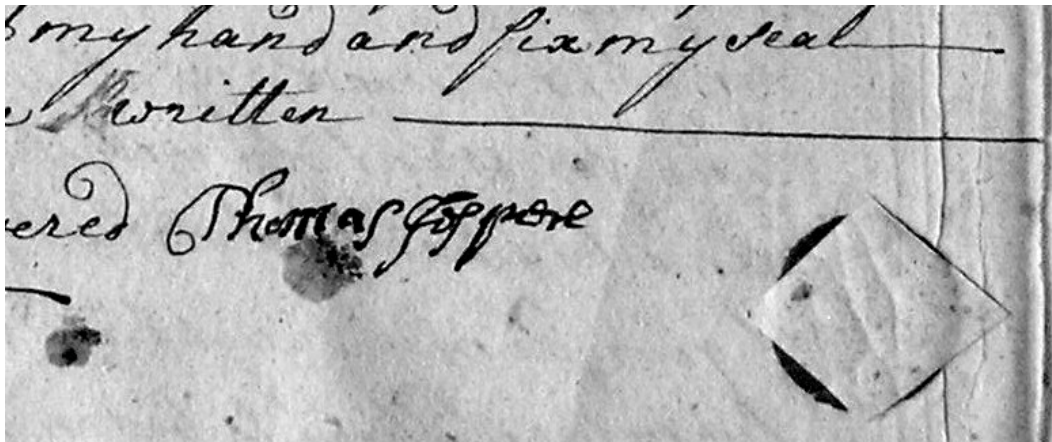 my hand and fix my seal
written
ered Thomas